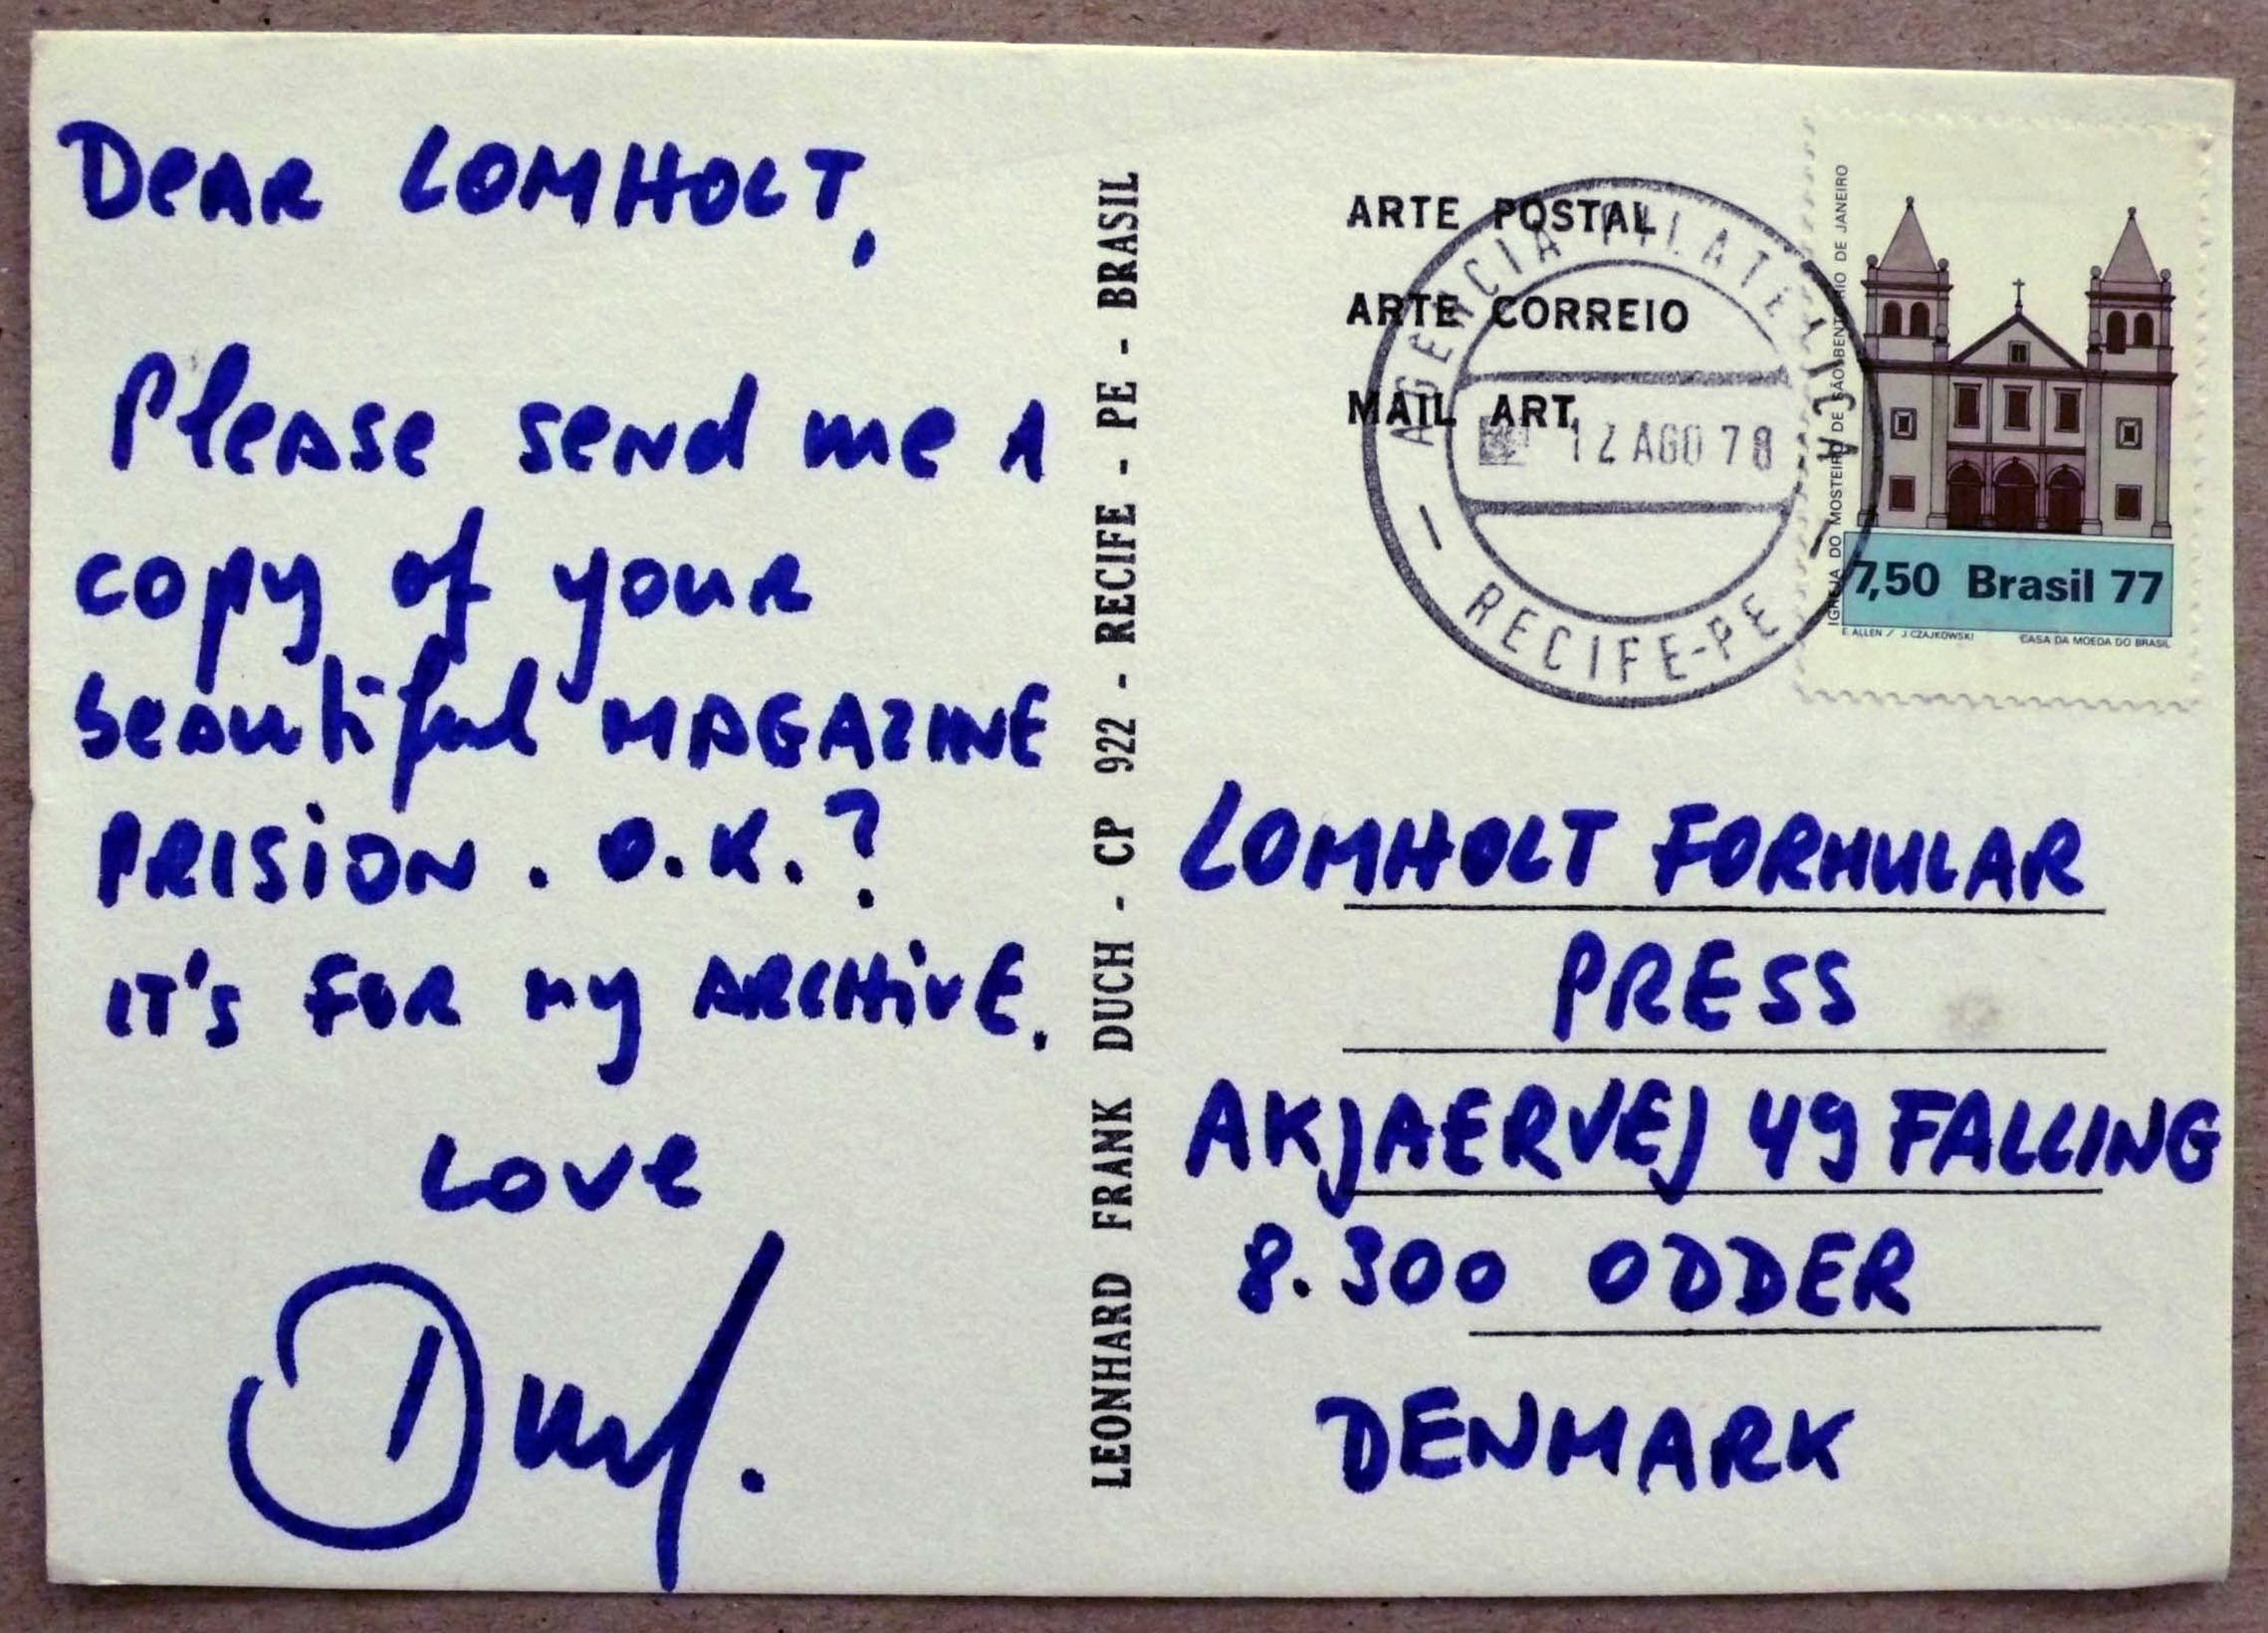 Dear LOMHOLT,
Please send me 1
copy of your
beautiful MAGAZINE
PRISION. O.K.?
IT'S FOR my ARCHIVE.
Love
LEONHARD FRANK DUCH - CP 922 - RECIFE - PE - BRASIL
ARTE POSTAL
ARTE CORREIO
MAIL ART
AGENCIA FILATELICA
12 AGO 78
RECIFE-PE
IGREJA DO MOSTEIRO DE SÃO BENTO RIO DE JANEIRO
7,50 Brasil 77
E. ALLEN / J. CZAJKOWSKI CASA DA MOEDA DO BRASIL
LOMHOLT FORMULAR
PRESS
AKJAERVEJ 49 FALLING
8.300 ODDER
DENMARK